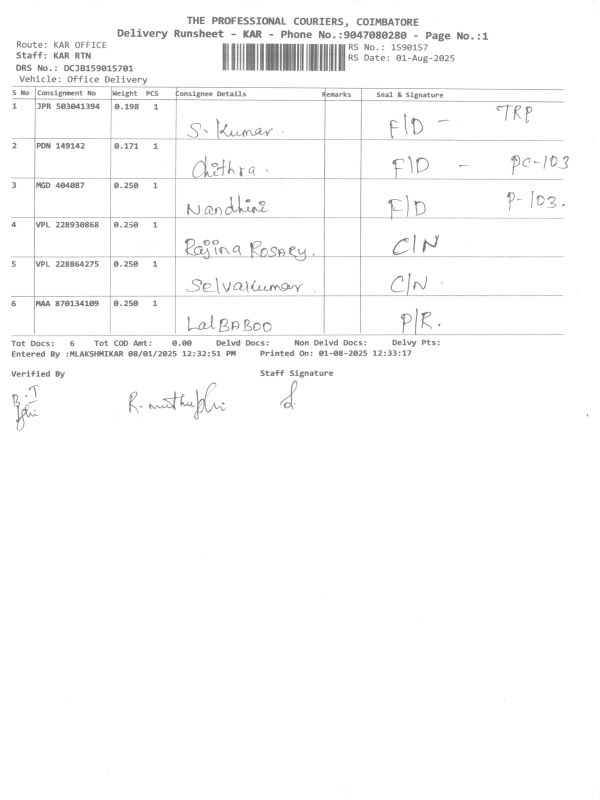 THE PROFESSIONAL COURIERS, COIMBATORE
Delivery Runsheet - KAR - Phone No.:9047080280 - Page No.:1
Route: KAR OFFICE RS No.: 1590157
Staff: KAR RTN RS Date: 01-Aug-2025
DRS No.: DCJB159015701
Vehicle: Office Delivery
S No Consignment No Weight PCS Consignee Details Remarks Seal & Signature
1 JPR 503041394 0.198 1 S. Kumar. F/D - TRP
2 PDN 149142 0.171 1 Chithra. F/D - PC-103
3 MGD 404087 0.250 1 Nandhini F/D P-103.
4 VPL 228930868 0.250 1 Rajina ROSARY. C/N
5 VPL 228864275 0.250 1 Selvakumar. C/N.
6 MAA 870134109 0.250 1 Lal BABOO P/R.
Tot Docs: 6 Tot COD Amt: 0.00 Delvd Docs: Non Delvd Docs: Delvy Pts:
Entered By :MLAKSHMIKAR 08/01/2025 12:32:51 PM Printed On: 01-08-2025 12:33:17
Verified By Staff Signature